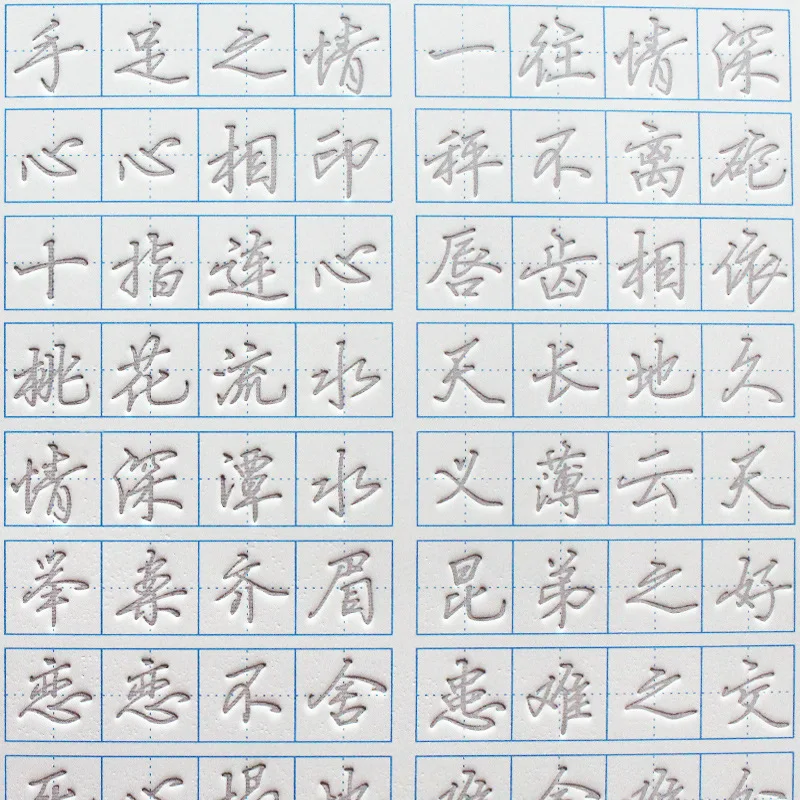 手足之情
一往情深
心心相印
秤不离砣
十指连心
唇齿相依
桃花流水
天长地久
情深潭水
义薄云天
举案齐眉
昆弟之好
恋恋不舍
患难之交